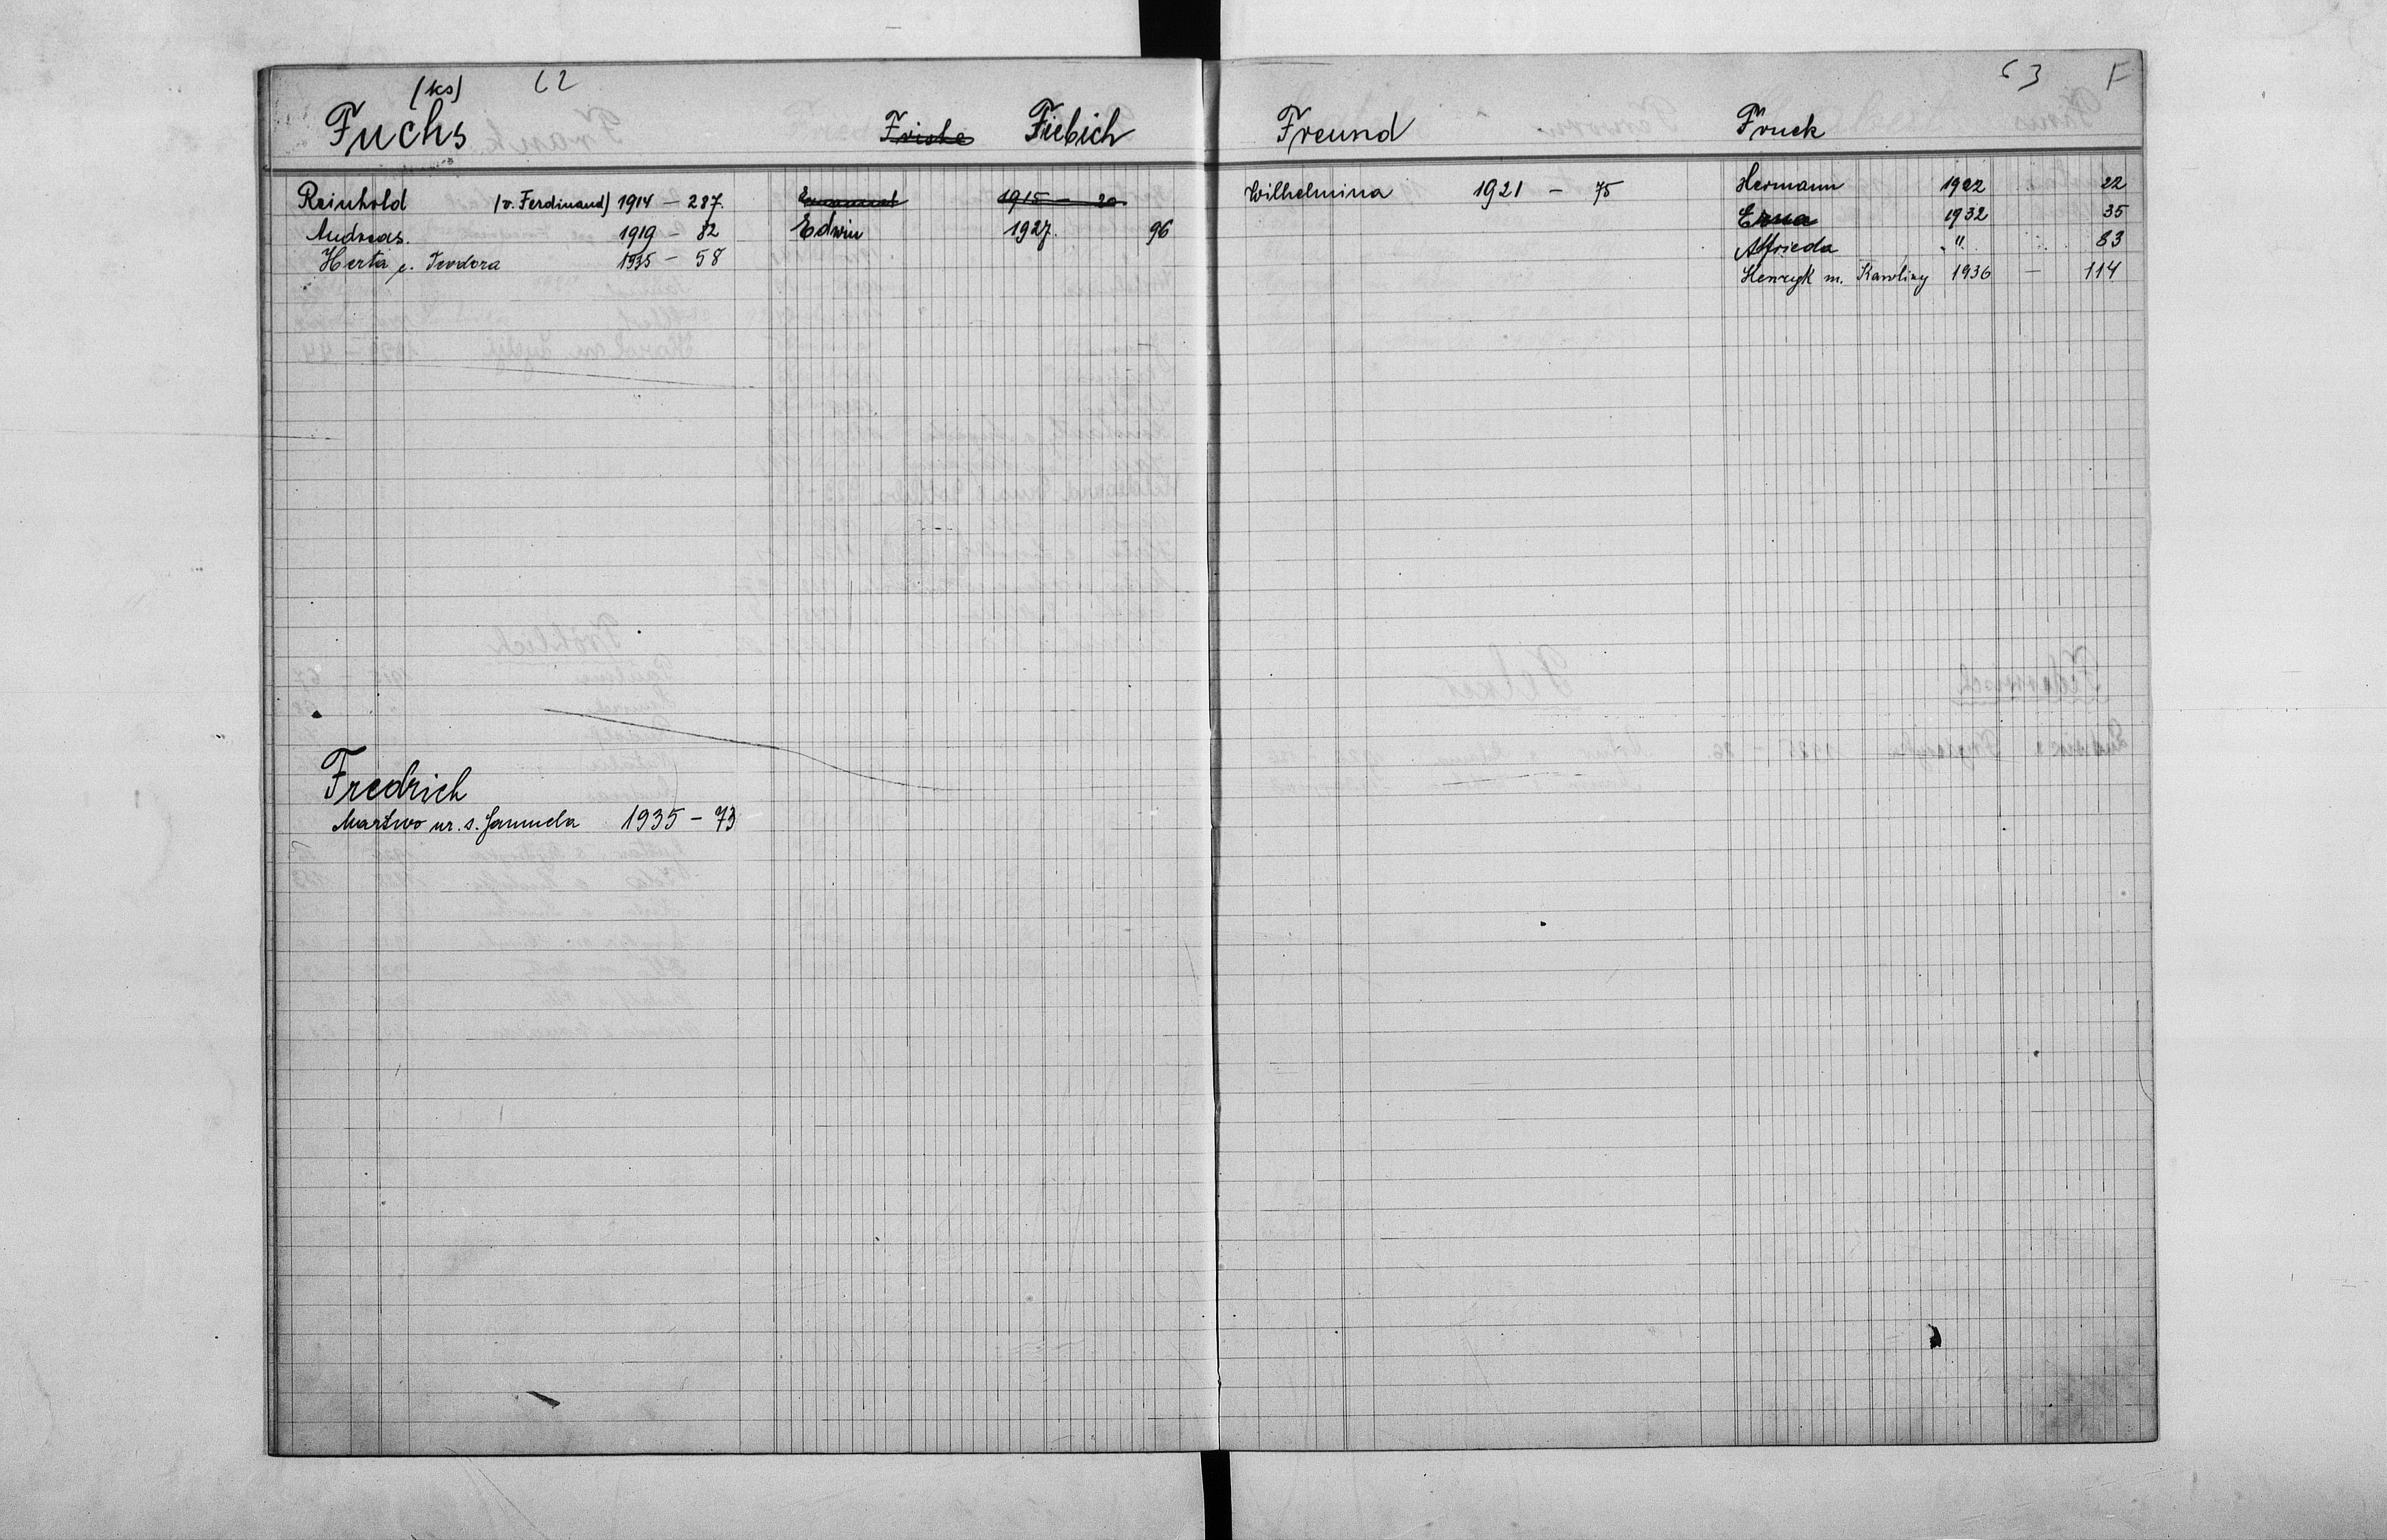 62
(ks)
Fuchs
Reinhold (v. Ferdinand) 1914 - 287.
Andreas. 1919 - 82
Herta c. Teodora 1935 - 58
Fredrich
Martwo ur. s. Samuela 1935 - 73
Frische Fiebich
Emanuel 1915 - 20
Edwin 1927. 96
63 F
Freund
Wilhelmina 1921 - 75
Fruck
Hermann 1922 22
Erna 1932 35
Alfrieda " 83
Henryk m. Karoliny 1936 - 114